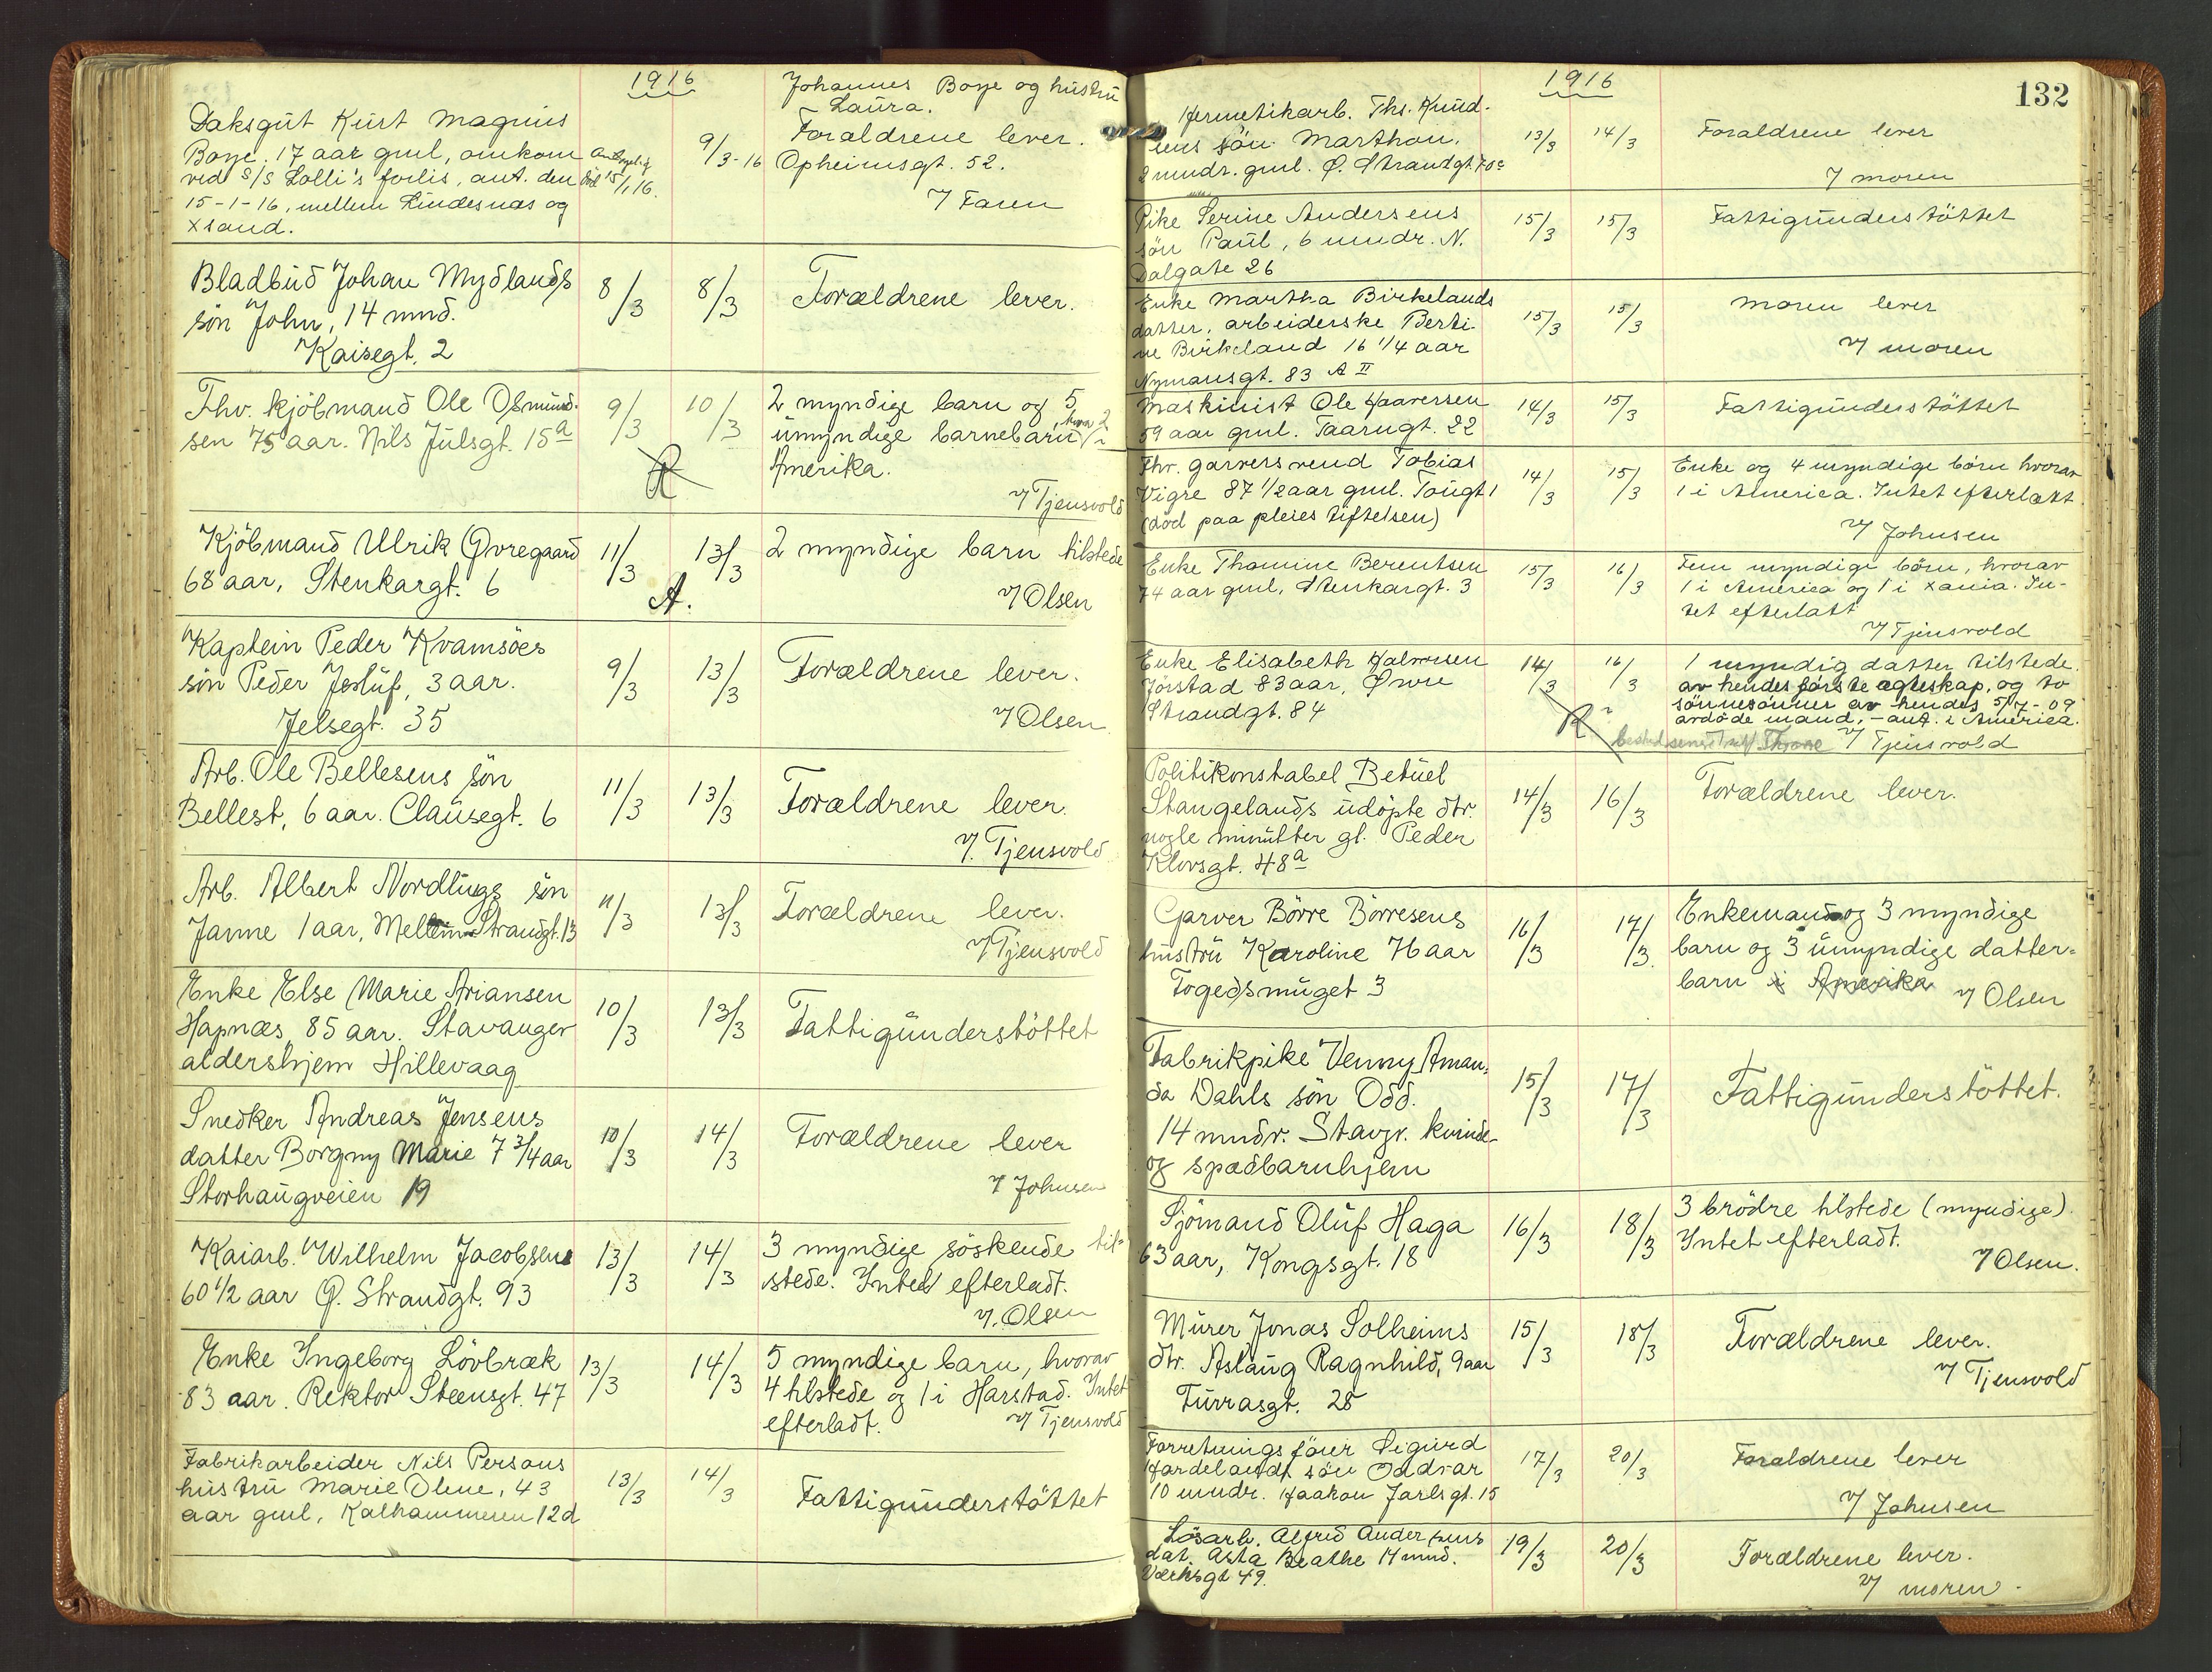 1916
Daksgut Kurt Magnus
Boye, 17 aar gml, omkom
ved S/S Lolli's forlis, ant. den
15-1-16, mellem Lindesnæs og
Xsand.
15/1 16.
9/3-16
Johannes Boye og hustru
Laura.
Forældrene lever.
Opheimsgt. 52.
V/ Faren
Bladbud Johan Mydlands
sön John, 14 mnd.
Kaisegt. 2
8/3
8/3
Forældrene lever.
Fhv. kjöbmand Ole Osmund-
sen 75 aar. Nils Julsgt. 15a
9/3
10/3
R
2 myndige barn og 5
umyndige barnebarn hvorav 2 i
Amerika.
V/ Tjensvold
Kjöbmand Ulrik Øvregaard
68 aar, Stenkargt. 6
11/3
13/3
A.
2 myndige barn tilstede
V/ Olsen
Kaptein Peder Kvamsöes
sön Peder 3 aar.
Jelsegt. 35
9/3
13/3
Forældrene lever.
V/ Olsen
Arb. Ole Bellesens sön
Bellest, 6 aar. Clausegt. 6
11/3
13/3
Forældrene lever.
V/ Tjensvold
Arb. Albert Nordtugs sön
Janne 1 aar, Mellem Strandgt. 13
11/3
13/3
Forældrene lever.
V/ Tjensvold
Enke Else Marie Ariansen
Hapnæs, 85 aar. Stavanger
aldershjem Hillevaag
10/3
13/3
Fattigunderstöttet
Snedker Andreas Jensens
datter Borgny Marie 7 3/4 aar
Storhaugveien 19
10/3
14/3
Forældrene lever
V/ Johnsen
Kaiarb. Wilhelm Jacobsen
60 1/2 aar Ø. Strandgt. 93
13/3
14/3
3 myndige söskende til-
stede. Intet efterladt.
V/ Olsen
Enke Ingeborg Lövbræk
83 aar. Rektor Steensgt. 47
13/3
14/3
5 myndige barn, hvorav
4 tilstede og 1 i Harstad. Intet
efterladt.
V/ Tjensvold
Fabrikarbeider Nils Persons
hustru Marie Olene, 43
aar gml, Kalhammeren 12d
13/3
14/3
Fattigunderstöttet
1916
132
Hermetikarb. Ths. Knud-
sens sön Marthon.
2 mndr. gml. Ø. Strandgt. 70a
13/3
14/3
Forældrene lever
V/ moren
Pike Serine Andersens
sön Paul, 6 mndr. N.
Dalgate 26
15/3
15/3
Fattigunderstöttet
Enke Martha Birkelands
datter, arbeiderske Berti-
ne Birkeland 16 1/4 aar
Nymansgt. 83 A II
15/3
15/3
Moren lever
V/ moren
Maskinist Ole Haaversen
59 aar gml. Taarngt. 22
14/3
15/3
Fattigunderstöttet
Fhv. garversvend Tobias
Vigre 87 1/2 aar gml. Tougt 1
(död paa pleiestiftelsen)
14/3
15/3
Enke og 4 myndige börn hvorav
1 i America. Intet efterlatt
V/ Johnsen
Enke Thomine Berentsen
74 aar gml, Stenkargt. 3
15/3
16/3
Fem myndige börn, hvorav
1 i America og 1 i Xania. In-
tet efterlatt
V/ Tjensvold
Enke Elisabeth Halvorsen
Jörstad 83 aar, Øvre
Strandgt. 84
14/3
16/3
R
1 myndig datter tilstede.
av hendes förste egteskap, og to
sönnesönner av hendes 5/7-09
avdöde mand, - ant. i America.
V/ Tjensvold
Politikonstabel Betuel
Stangelands udöpte dtr.
nogle minutter gl. Peder
Klovsgt. 48a
14/3
16/3
Forældrene lever.
Garver Börre Börresens
hustru Karoline 76 aar
Fogedsmuget 3
16/3
17/3.
Enkemand og 3 myndige
barn og 3 umyndige datter-
barn i Amerika
V/ Olsen
Fabrikpike Venny Aman-
da Dahls sön Odd.
14 mndr. Stavgr. kvinde-
og spædbarnhjem
15/3
17/3
Fattigunderstöttet.
Sjömand Oluf Haga
63 aar, Kongsgt. 18
16/3
18/3
3 brödre tilstede (myndige)
Intet efterladt.
V/ Olsen.
Murer Jonas Solheims
dtr. Aslaug Ragnhild, 9 aar
Furrasgt. 28
15/3
18/3
Forældrene lever.
V/ Tjensvold
Forretningsförer Sigurd
Hardelandt sön Oddvar
10 mndr. Haakon Jarlsgt. 15
17/3
20/3
Forældrene lever
V/ Johnsen
Lösarb. Alfred Andersens
dat. Asta Beathe 14 mnd.
Verksgt 49.
19/3
20/3
Forældrene lever.
V/ moren.